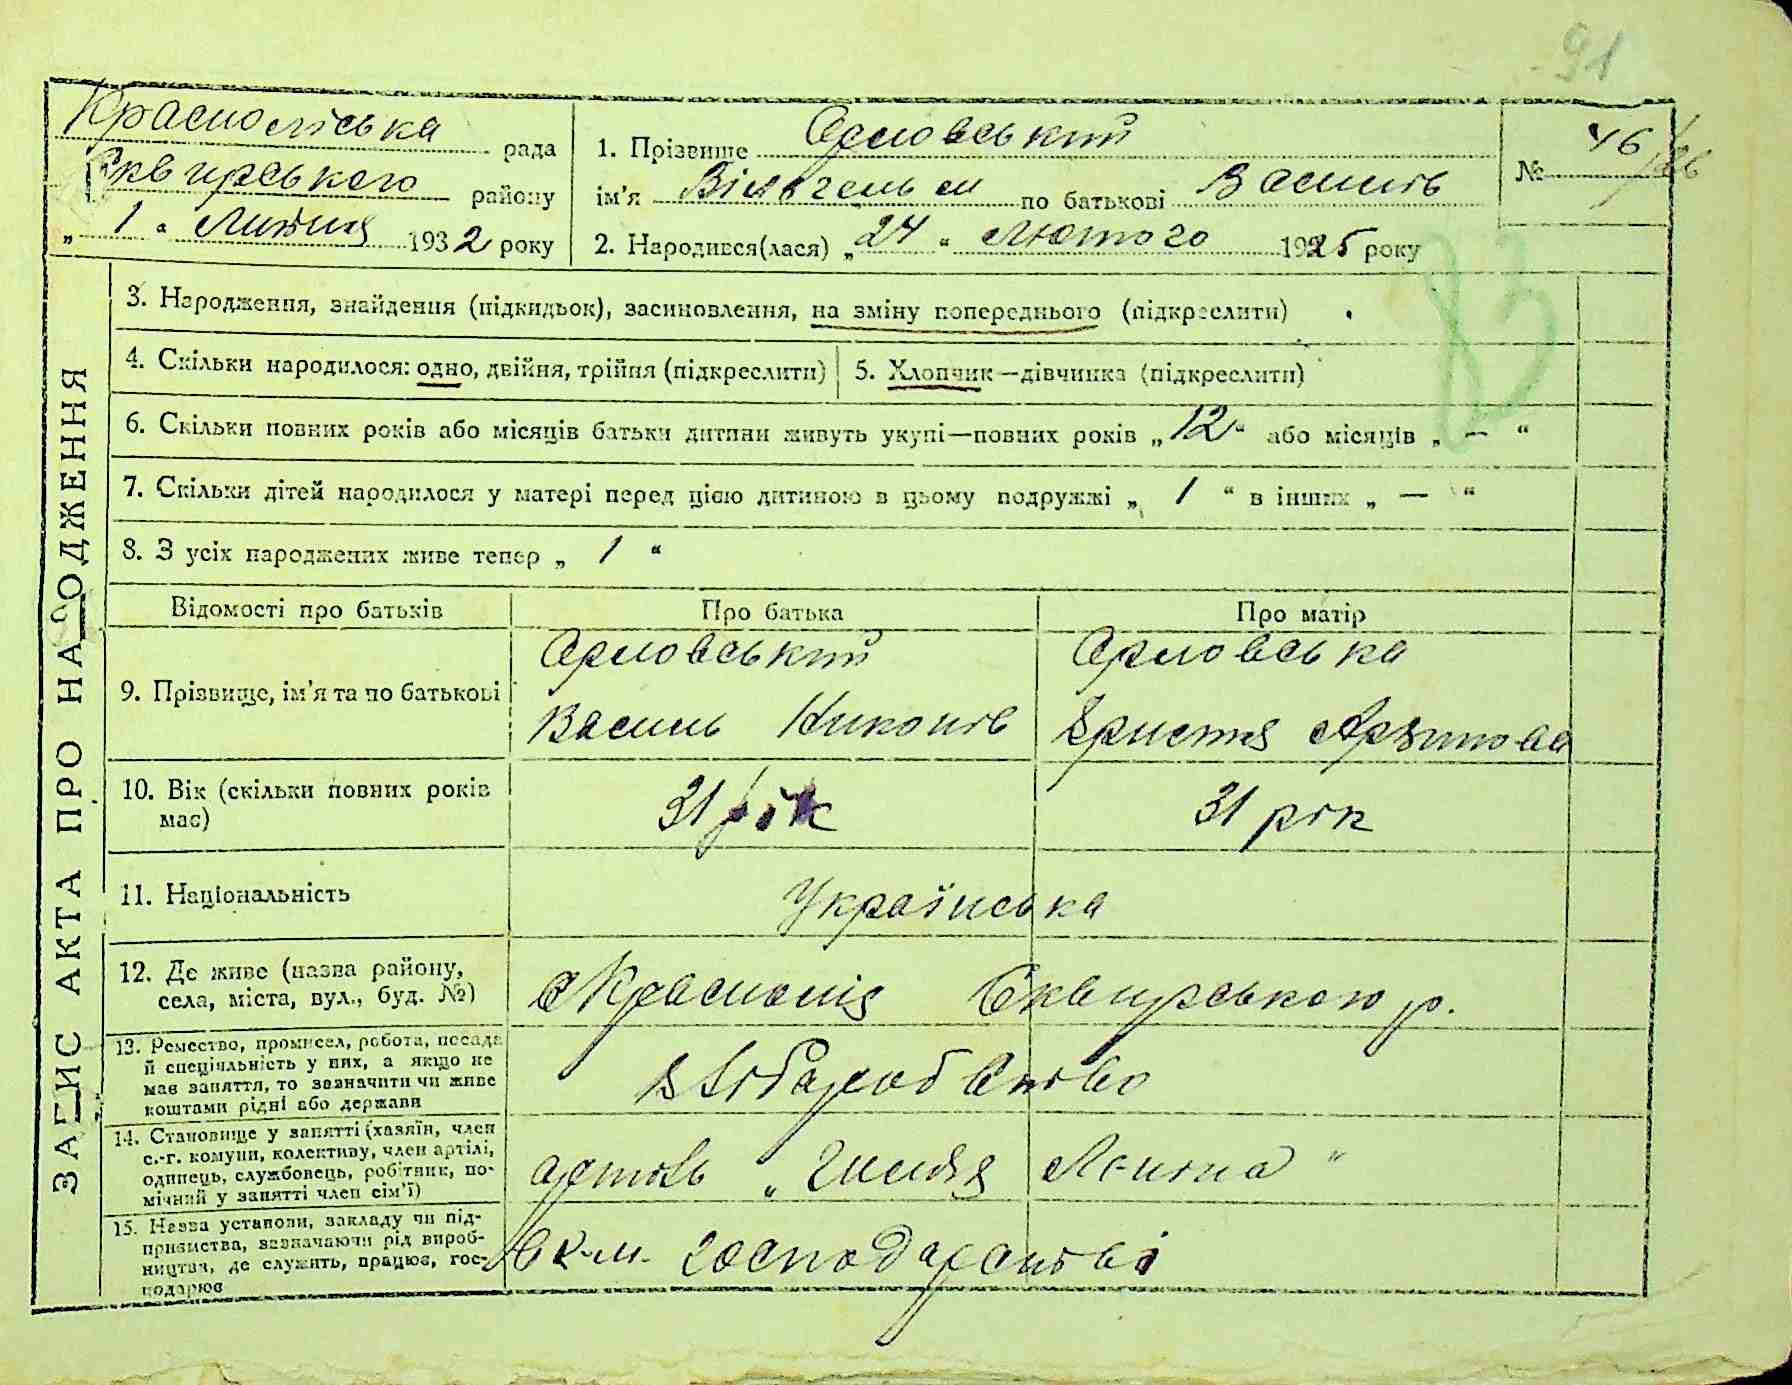 91
Краснолiська рада
Сквирського району
„ 1 “ Липня 1932 року
1. Прізвище Орловський
ім’я Вільгельм по батькові Василів
2. Народився(лася) „ 24 “ Лютого 1925 року
№ 46/26
ЗАПИС АКТА ПРО НАРОДЖЕННЯ
3. Народження, знайдення (підкидьок), засиновлення, на зміну попереднього (підкреслити)
4. Скільки народилося: одно, двійня, трійня (підкреслити)
5. Хлопчик—дівчинка (підкреслити)
6. Скільки повних років або місяців батьки дитини живуть укупі—повних років „ 12 “ або місяців „ — “
7. Скільки дітей народилося у матері перед цією дитиною в цьому подружжі „ 1 “ в інших „ — “
8. З усіх народжених живе тепер „ 1 “
Відомості про батьків
Про батька
Про матір
9. Прізвище, ім’я та по батькові
Орловський
Василь Никонів
Орловська
Христя Архипова
10. Вік (скільки повних років
має)
31 рік
31 рік
11. Національність
Українська
12. Де живе (назва району,
села, міста, вул., буд. №)
с Красноліся Сквирського р.
13. Ремество, промисел, робота, посада
й спеціяльність у них, а якщо не
має заняття, то зазначити чи живе
коштами рідні або держави
хліборобство
14. Становище у занятті (хазяїн, член
с.-г. комуни, колективу, член артілі,
одинець, службовець, робітник, по-
мічний у занятті член сім’ї)
артіль „ Імені Леніна “
15. Назва установи, закладу чи під-
приємства, зазначаючи рід вироб-
ництва, де служить, працює, гос-
подарює
в к-м. господарстві